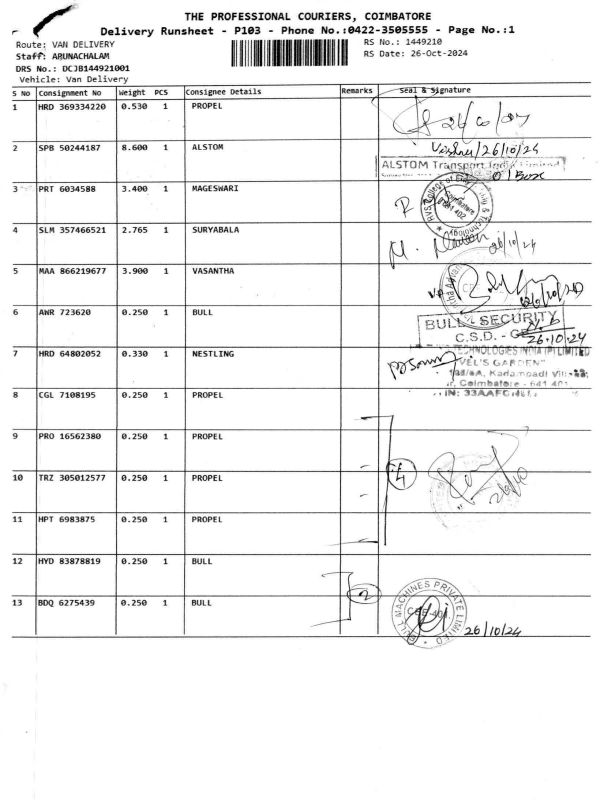 THE PROFESSIONAL COURIERS, COIMBATORE
Delivery Runsheet - P103 - Phone No.:0422-3505555 - Page No.:1
Route: VAN DELIVERY
RS No.: 1449210
Staff: ARUNACHALAM
RS Date: 26-Oct-2024
DRS No.: DCJB144921001
Vehicle: Van Delivery
S No Consignment No Weight PCS Consignee Details Remarks Seal & Signature
1 HRD 369334220 0.530 1 PROPEL
2 SPB 50244187 8.600 1 ALSTOM 26/10/24
ALSTOM Transport India Limited
01 Box
3 PRT 6034588 3.400 1 MAGESWARI
RVS College of
Coimbatore
641 402
4 SLM 357466521 2.765 1 SURYABALA 26/10/24
5 MAA 866219677 3.900 1 VASANTHA
6 AWR 723620 0.250 1 BULL
BULL SECURITY
C.S.D. -
26.10.24
7 HRD 64802052 0.330 1 NESTLING
TECHNOLOGIES INDIA (P) LIMITED
VEL'S GARDEN"
Kadampadi
Coimbatore - 641 401
8 CGL 7108195 0.250 1 PROPEL
9 PRO 16562380 0.250 1 PROPEL
10 TRZ 305012577 0.250 1 PROPEL 4
26/10
11 HPT 6983875 0.250 1 PROPEL
12 HYD 83878819 0.250 1 BULL 2
13 BDQ 6275439 0.250 1 BULL
BULL MACHINES PRIVATE LIMITED
26/10/24